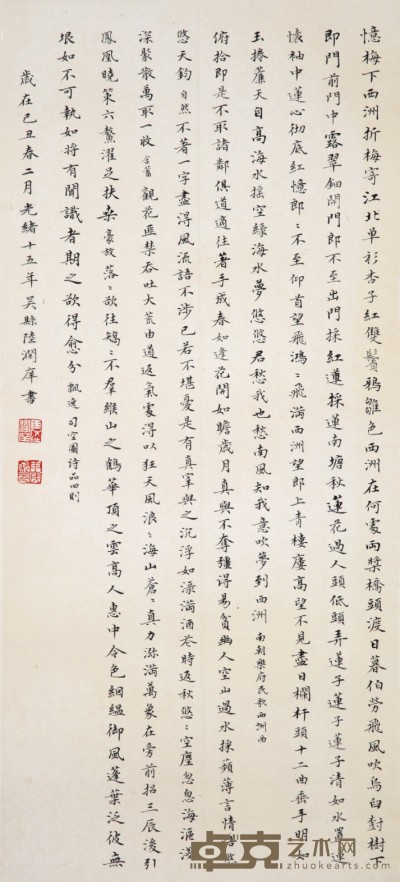 憶梅下西洲折梅寄江北單衫杏子紅雙鬢鴉雛色西洲在何處兩槳橋頭渡日暮伯勞飛風吹烏臼樹樹下
即門前門中露翠鈿開門郎不至出門採紅蓮採蓮南塘秋蓮花過人頭低頭弄蓮子蓮子清如水置蓮
懷袖中蓮心徹底紅憶郎〻不至仰首望飛鴻〻飛滿西洲望郎上青樓樓高望不見盡日欄杆頭十二曲垂手明如
玉捲簾天自高海水搖空綠海水夢悠悠君愁我也愁南風知我意吹夢到西洲 南朝樂府民歌西洲曲
俯拾即是不取諸鄰俱道適往著手成春如逢花開如瞻歲月真與不奪彊得易貧幽人空山過水採蘋薄言情悟悠
悠天鈞 自然 不著一字盡得風流語不涉己若不堪憂是有真宰與之沉浮如淥滿酒花時返秋悠〻空塵忽忽海漚淺
深聚散萬取一收 含蓄 觀花匪禁吞吐大荒由道返氣處得以狂天風浪〻海山蒼〻真力瀰滿萬象在旁前招三辰後引
鳳凰曉策六鰲濯足扶桑 豪放 落〻欲往矯〻不羣緱山之鶴華頂之雲高人惠中令色絪縕御風蓬葉泛彼無
垠如不可執如將有聞識者期之欲得愈分 飄逸 司空圖詩品四則
歲在己丑春二月光緒十五年吳縣陸潤庠書
卓克艺术网